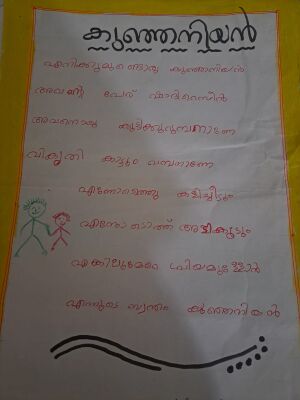 കുഞ്ഞനിയൻ
എനിക്കുമുണ്ടൊരു കുഞ്ഞനിയൻ
അവന്റെ പേര്
അവനൊരു കുട്ടിക്കുറുമ്പനാണേ
വികൃതി കാട്ടും വമ്പനാണേ
എന്നോടൊത്തു കളിച്ചീടും
എന്നോടൊത്ത് അടികൂടും
എങ്കിലുമേറെ പ്രിയമുള്ളോൻ
എന്നുടെ സ്വന്തം കുഞ്ഞനിയൻ